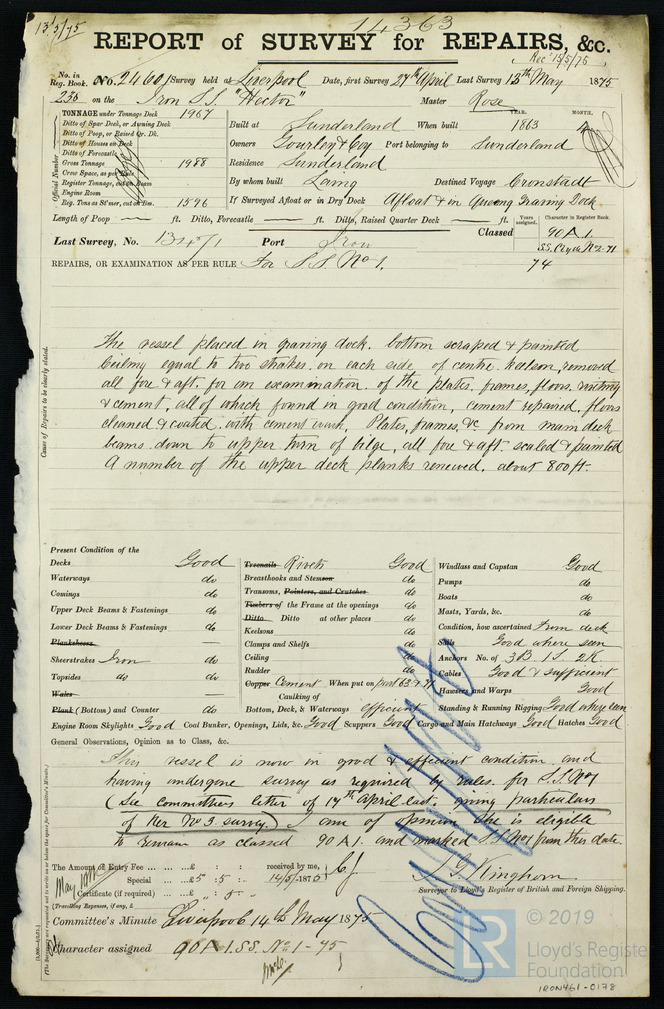 13/5/75
14363
REPORT of SURVEY for REPAIRS, &c.
Rec' 15/5/75
No. in Reg. Book. No. 2460 Survey held at Liverpool Date, first Survey 27th April Last Survey 13th May 1875
236 on the Iron S.S. "Hector" Master Rose
TONNAGE under Tonnage Deck 1967
Ditto of Spar Deck, or Awning Deck
Ditto of Poop, or Raised Qr. Dk.
Ditto of Houses on Deck
Ditto of Forecastle
Gross Tonnage 1988
Crew Space, as per Rule
Register Tonnage, cut on Beam
Engine Room
Reg. Tons as St'mer, cut on Bm. 1596
Official Number
YEAR. MONTH.
Built at Sunderland When built 1863
Owners Gourley & Coy Port belonging to Sunderland
Residence Sunderland
By whom built Laing Destined Voyage Cronstadt
If Surveyed Afloat or in Dry Dock Afloat & in Queens Graving Dock
Length of Poop — ft. Ditto, Forecastle — ft. Ditto, Raised Quarter Deck — ft.
Years assigned. Character in Register Book.
Last Survey, No. Port Iron Classed 90 A 1.
S.S. Clyde No 2-71
74
REPAIRS, OR EXAMINATION AS PER RULE For S.S. No 1.
Cause of Repairs to be clearly stated.
The vessel placed in graving dock. bottom scraped & painted
Ceiling equal to two strakes on each side of centre kelson, removed
all fore & aft. for an examination of the plates, frames, floors, riveting
& cement, all of which found in good condition, cement repaired, floors
cleaned & coated with cement wash, Plates, frames, &c from main deck
beams down to upper turn of bilge, all fore & aft. scaled & painted
A number of the upper deck planks renewed, about 800 ft.
Present Condition of the
Decks Good
Waterways do
Comings do
Upper Deck Beams & Fastenings do
Lower Deck Beams & Fastenings do
Planksheers —
Sheerstrakes Iron do
Topsides do do
Wales —
Plank (Bottom) and Counter do
Treenails Rivets Good
Breasthooks and Stemson do
Transoms, Pointers, and Crutches do
Timbers of the Frame at the openings do
Ditto Ditto at other places do
Keelsons do
Clamps and Shelfs do
Ceiling do
Rudder do
Copper Cement When put on part 63 & 71
Caulking of
Bottom, Deck, & Waterways efficient
Windlass and Capstan Good
Pumps do
Boats do
Masts, Yards, &c. do
Condition, how ascertained From deck
Sails Good where seen
Anchors No. of 3B. 1S. 2K.
Cables Good & sufficient
Hawsers and Warps Good
Standing & Running Rigging Good where seen
Engine Room Skylights Good Coal Bunker, Openings, Lids, &c. Good Scuppers Good Cargo and Main Hatchways Good Hatches Good
General Observations, Opinion as to Class, &c.
This vessel is now in good & efficient condition, and
having undergone survey as required by rules for S.S. No 1
(See committee's letter of 17th April last. giving particulars
of Her No 3 survey.) I am of opinion She is eligible
to remain as classed 90 A1. and marked S.S. No 1 from this date.
The Amount of Entry Fee ... ... £ : : received by me,
Special ... ... £5 : 5 : 14/5/1875
Certificate (if required) ... £ " : 5 :
(Travelling Expenses, if any, £
Surveyor to Lloyd's Register of British and Foreign Shipping.
Committee's Minute Liverpool 14th May 1875
Character assigned 90 A 1. SS. No. 1-75
© 2019
LR Lloyd's Register Foundation
IRON461-0178